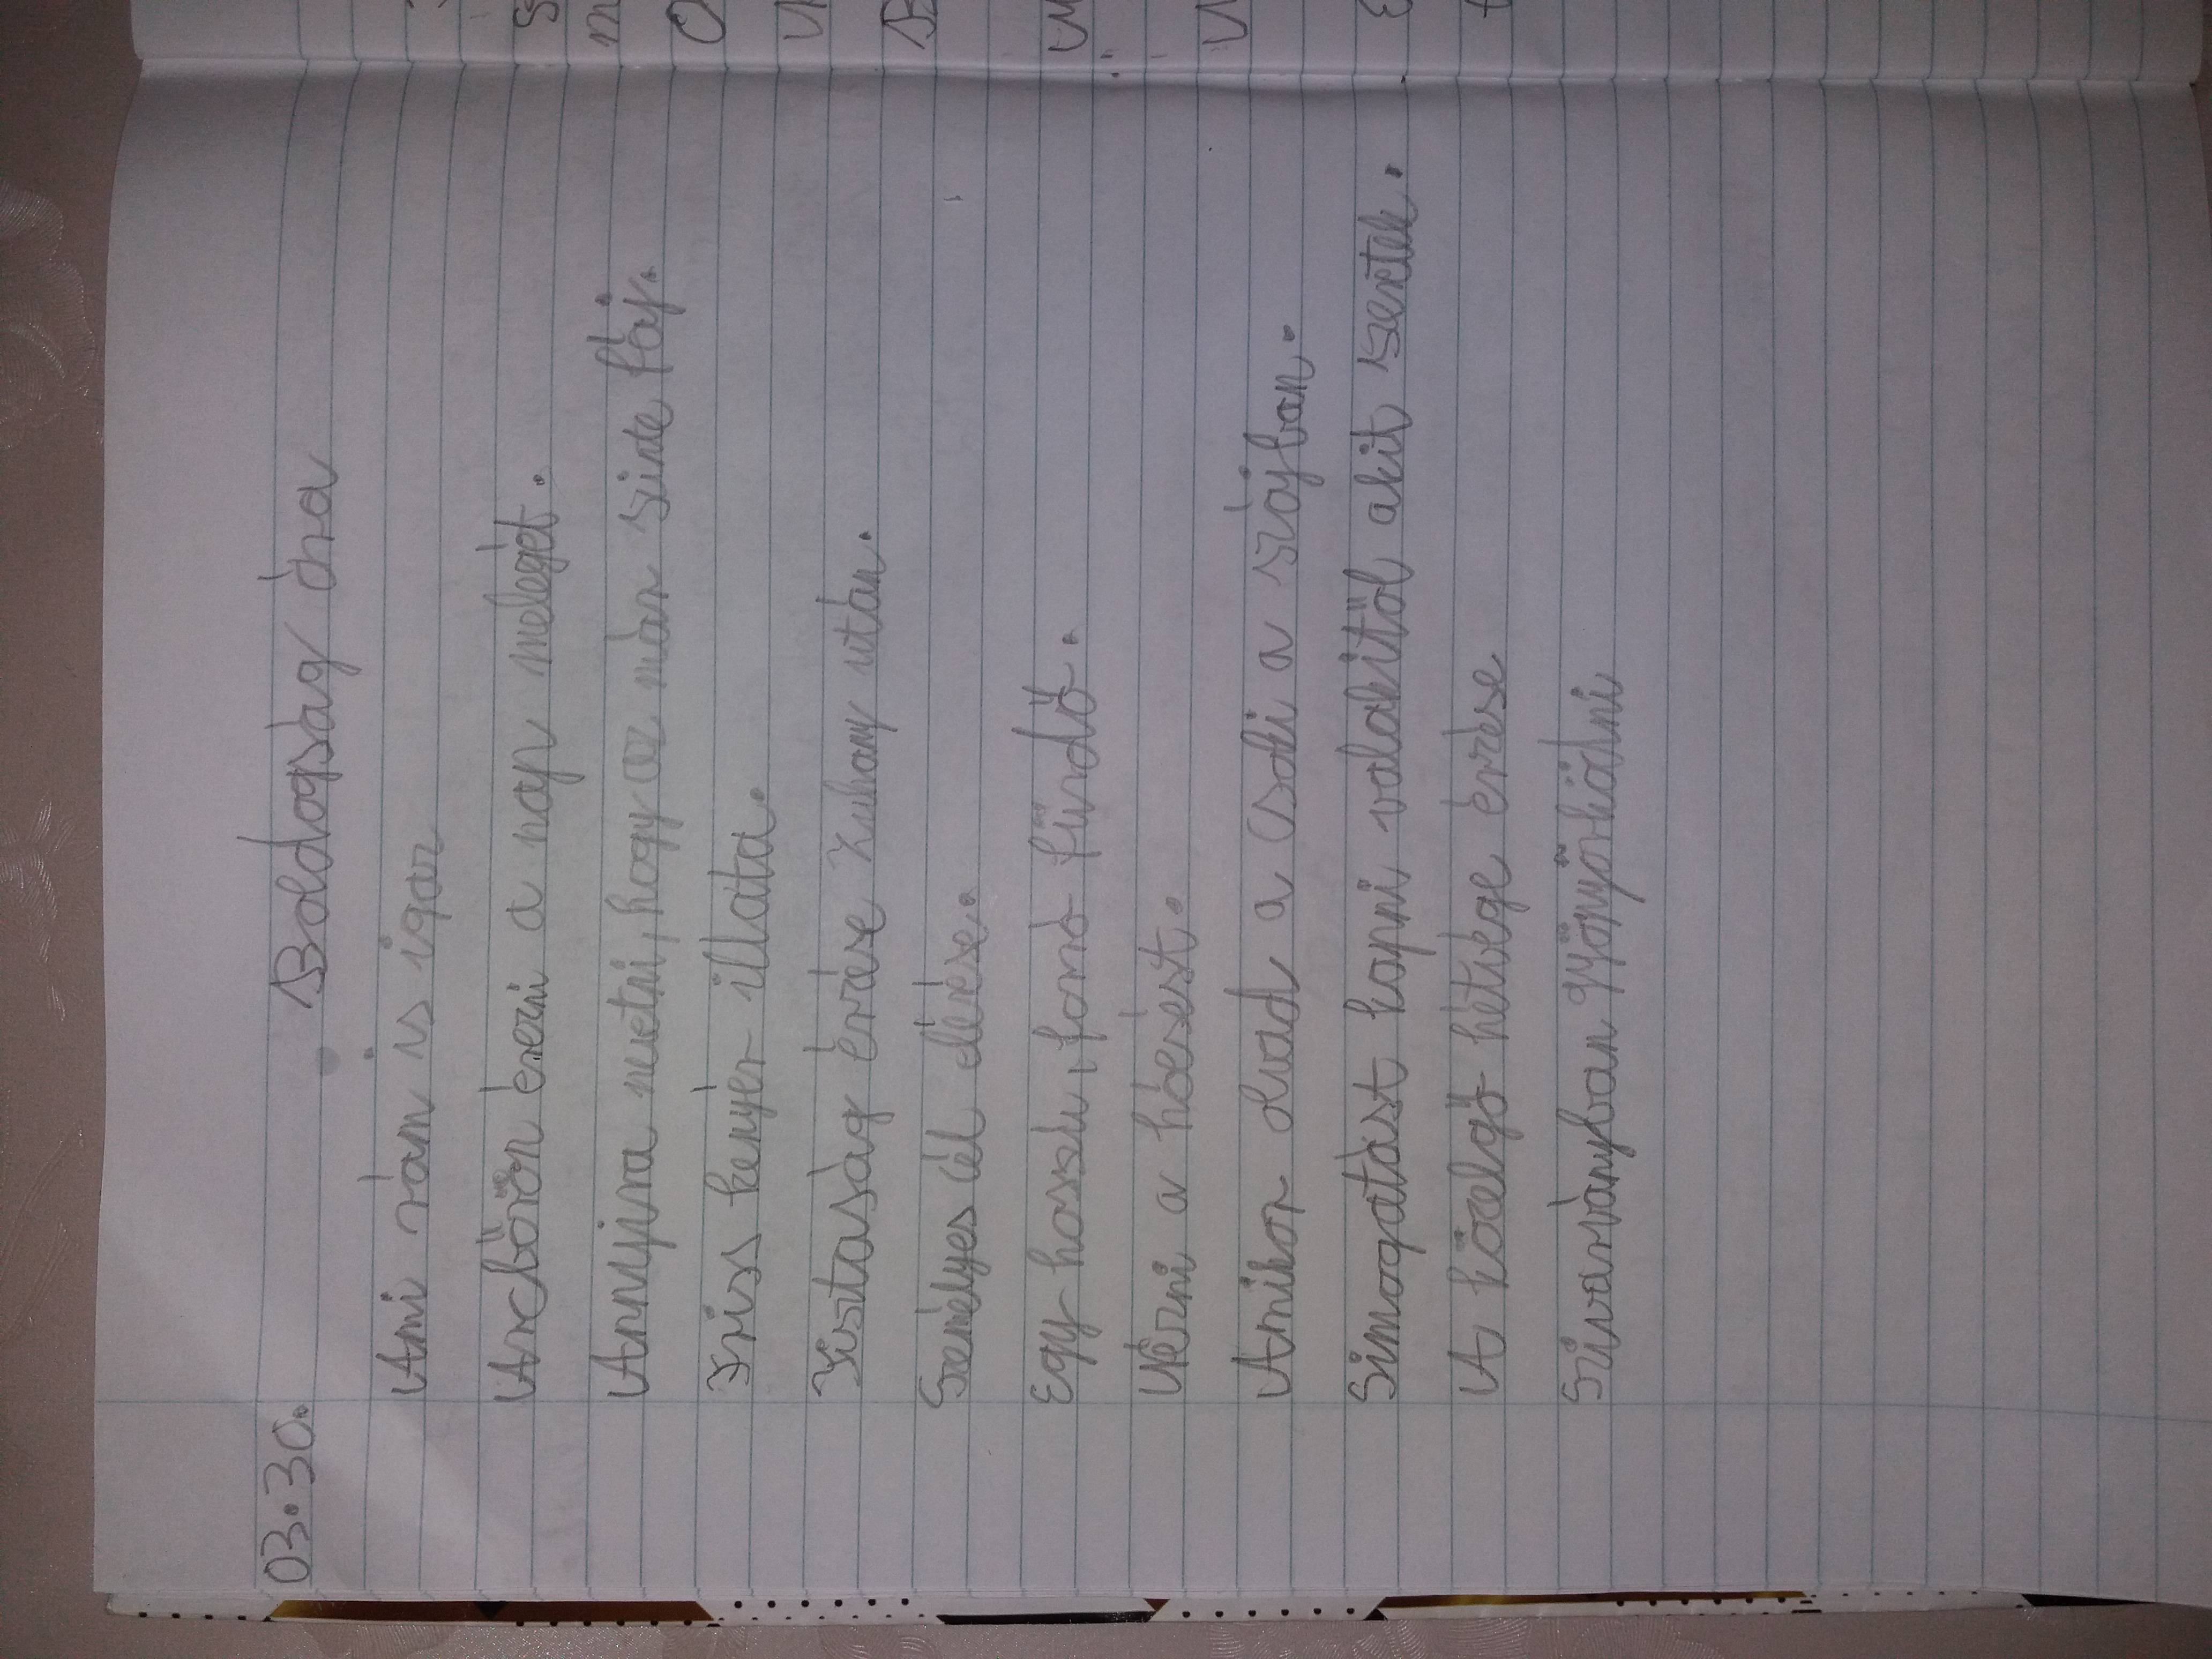 03.30.
Boldogság óra
Ami rám is igaz
Arcbőrön érezni a nap melegét.
Annyira nevetni, hogy az már szinte fáj.
Friss kenyér illata.
Tisztaság érzése zuhany után.
Személyes cél elérése.
Egy hosszú, forró fürdő.
Nézni a hóesést.
Amikor olvad a csoki a szájban.
Simogatást kapni valakitől akit szeretek.
A közelgő hétvége érzése
Szivárványban gyönyörködni